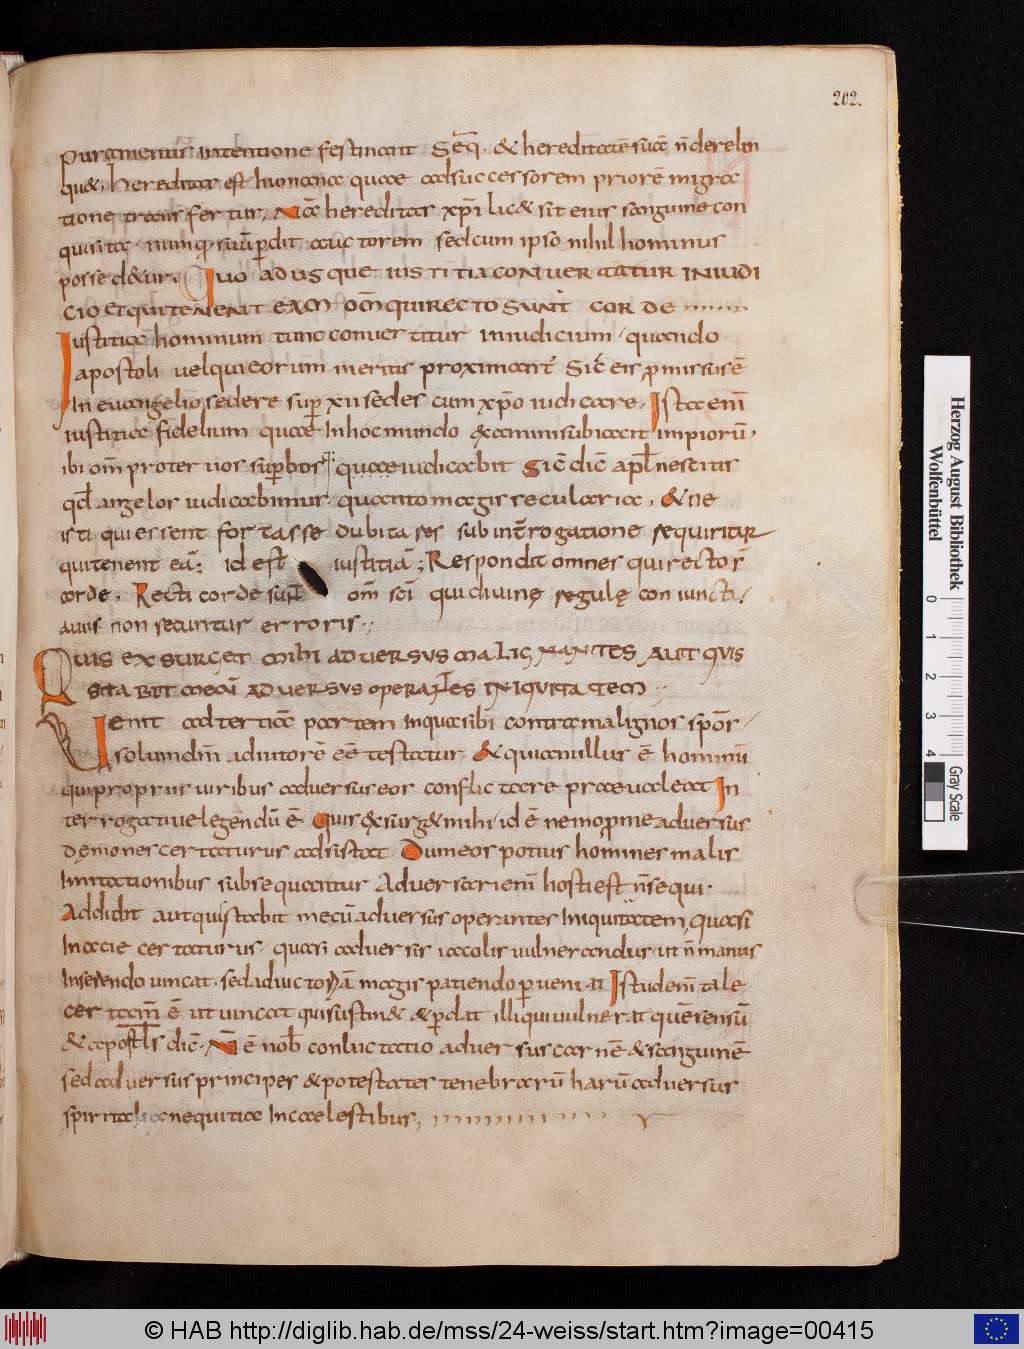 202.
puramentis intentione festinant Seq̄. & hereditatē suā n̄ derelin
qu&; hereditas est humana quae ad successorem priorē migra
tione transfertur; Nā hereditas xp̄i lic& sit eius sanguine con
quisita. numq̄ suū ꝑdit auctorem sed cum ipso nihil hominus
posse d&ur. QUO ADUSQUE IUSTITIA CONUERTATUR IN IUDI
CIO ET QUI TENENT EAM OM̄ QUI RECTO SUNT CORDE
Iustitia hominum tunc conuertitur in iudicium, quando
apostoli uel qui eorum meritis proximant. Sic̄ eis ꝓmissus ē
In euangelio sedere suꝑ xii sedes cum xp̄o iudicare. Ista enī
iustitia fidelium quae In hoc mundo examini subiacit impiorū,
ibi om̄ proteruos suꝑbos quae iudicabit Sic̄ dic̄ apl̄ nescitis
qd̄ angelos iudicabimus. quanto magis secularia. & ne
isti qui essent fortasse dubitares subint̄rogatione sequiritur
qui tenent eā; id est iustitiā; Respondit omnes qui recto s̄
corde. Recti corde sunt om̄ sc̄i qui diuinę regulę coniuncti.
auiis non secuntur erroris.
QUIS EXSURGET MIHI ADUERSUS MALIGNANTES AUT QUIS
STABIT MECŪ ADUERSUS OPERANTES INIQUITATEM
Uenit ad tertiā partem In qua sibi contra malignos sp̄os
solum dn̄m adiutorē eē testatur. & quia nullus ē hominū
qui propriis uiribus aduersus eos conflictare praeualeat In
terrogatiue legendū ē Quis exsurg& mihi. id ē nemo ꝓ me aduersus
dęmones certaturus adsistat. Dum eos potius homines malis
Imitationibus subsequantur Aduersari enī hosti est n̄ sequi.
Addidit aut quis stabit mecū aduersus operantes Iniquitatem, quasi
In acie certaturus. quasi aduersis iaculis uulnerandus. ut n̄ manus
Inserendo uincat. sed ad uictoriā magis patiendo ꝑueniat Istud enī tale
certam̄ ē ut uincat qui sustin& & ꝑdat illi qui uulnerat quē sensū
& apostl̄s dic̄. Nn̄ ē nob̄ conluctatio aduersus carnē & sanguinē
sed aduersus principes & potestates tenebrarū harū aduersus
spiritalia nequitiae In caelestibus;
Herzog August Bibliothek
Wolfenbüttel
0 1 2 3 4
Gray Scale
© HAB http://diglib.hab.de/mss/24-weiss/start.htm?image=00415